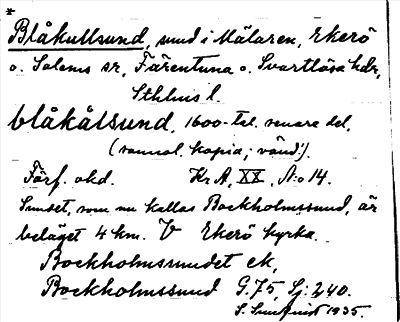 *
Blåkullsund, sund i Mälaren, Ekerö
o. Salems sr, Färentuna o. Svartlösa hdr,
Sthlms l.
blåkålsund, 1600-tal. senare del,
(sannol. kopia; vänd!).
Förf. okd. Kr A, XX, N:o 14.
Sundet, som nu kallas Bockholmssund, är
beläget 4 km. V Ekerö kyrka.
Bockholmssundet ek,
Bockholmssund G.75, Sj: 240.
S. Sundquist 1935.